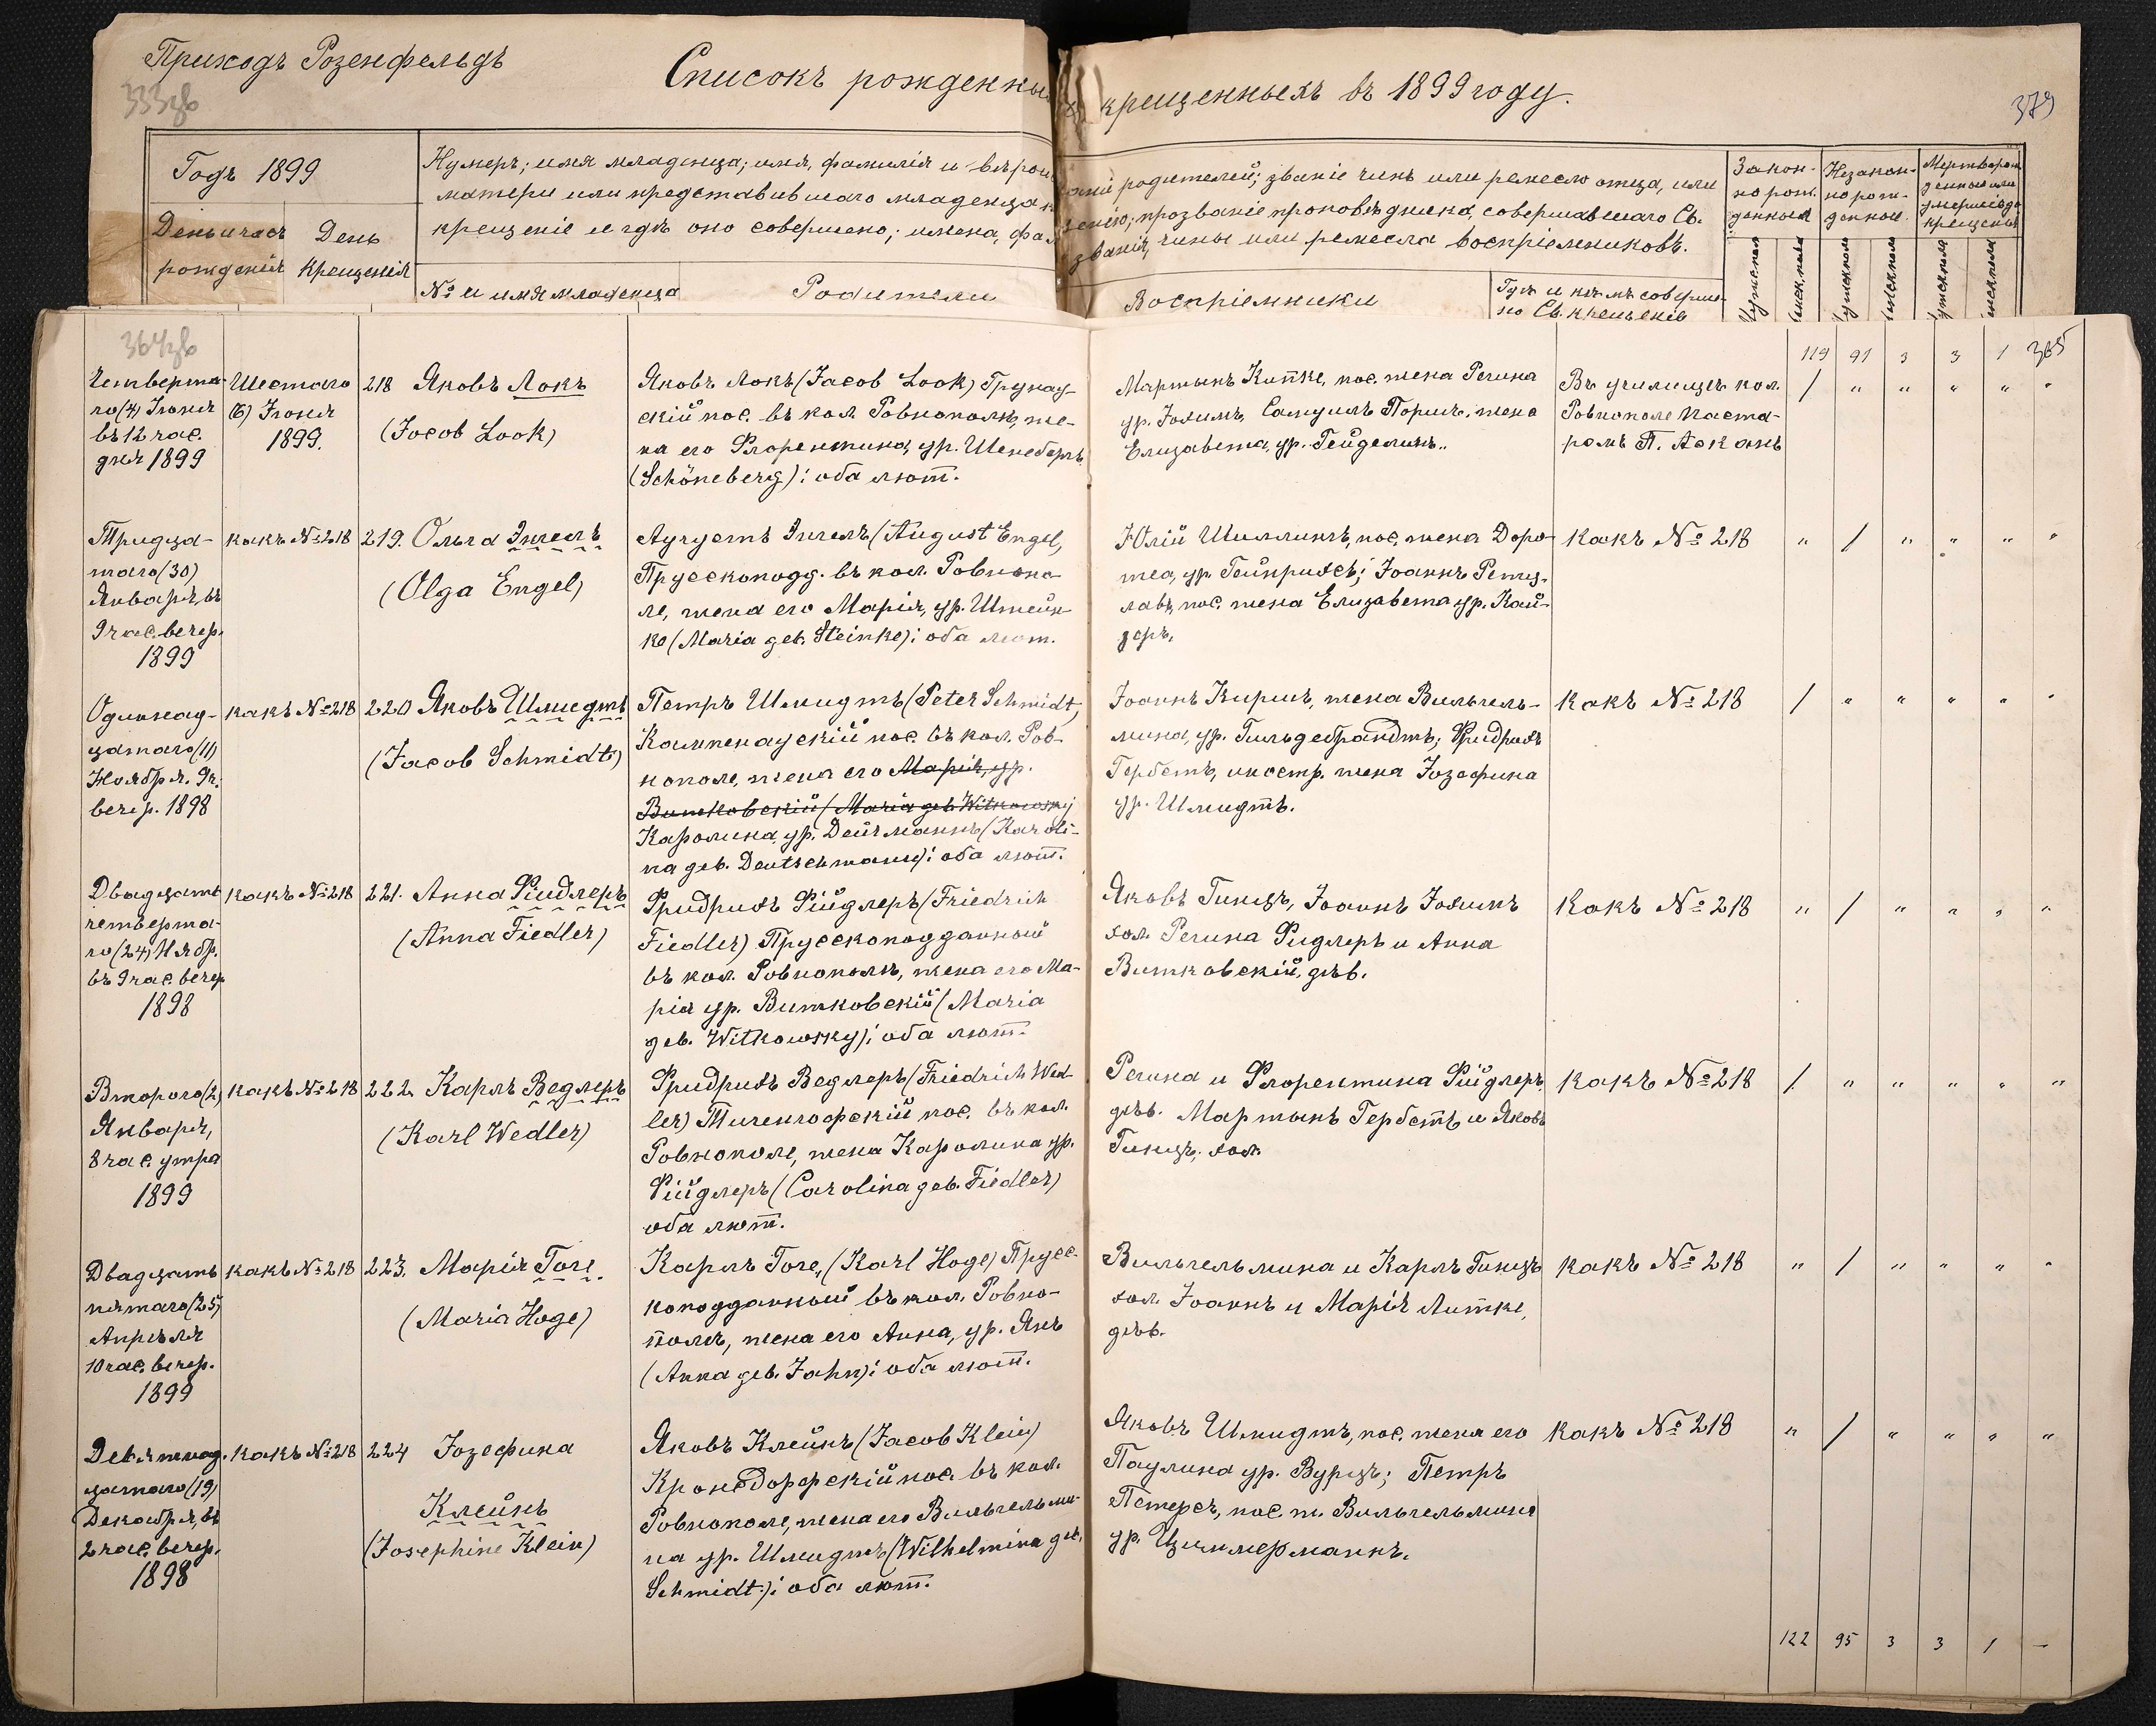 Приходъ Розенфельдъ
Списокъ рожденны
крещенныхъ въ 1899 году.
379
Годъ 1899
День и часъ
рожденія
День
крещенія
Нумеръ; имя младенца; имя, фамилія и вѣрои
матери или представившаго младенца к
крещеніе и гдѣ оно совершено; имена, фа
№ и имя младенца
Родители
родителей; званіе чинъ или ремесло отца, или
прозваніе проповѣдника, совершавшаго Св.
званія, чины или ремесла воспріемниковъ.
Воспріемники
Гдѣ и кѣмъ соверше-
но Св. крещеніе
Закон-
но рож-
денные
Незакон-
но рож-
денные
Мертворож-
денные или
умершіе до
крещенія
364
119 91 3 3 1 365
Четверта-
го (4) Іюня
въ 12 час.
дня 1899
Шестаго
(6) Іюня
1899.
218 Яковъ Локъ
(Jocob Look)
Яковъ Локъ (Jacob Look) Грунау-
скій пос. въ кол. Ровнополѣ, же-
на его Флорентина, ур. Шенебергъ
(Schöneberg); оба лют.
Мартынъ Кипке, пос. жена Регина
ур. Іохимъ, Самуилъ Поршъ, жена
Елизавета, ур. Гейделихъ.
Въ училищѣ кол.
Ровнополе Паста-
ромъ П. Локанъ
/ " " " " "
Тридца-
таго (30)
Января, въ
9 час. вечер.
1899
какъ № 218
219. Ольга Энгель
(Olga Engel)
Аугустъ Энгель (August Engel,
Прусскоподд. въ кол. Ровнопо-
ле, жена его Марія, ур. Штейн-
ке (Maria geb. Steinke); оба лют.
Юлій Шиллингъ, пос. жена Доро-
теа, ур. Гейнрихсъ; Іоаннъ Рецз-
лавъ, пос. жена Елизавета ур. Кай-
зеръ.
какъ № 218
" / " " " "
Одиннад-
цатаго (11)
Ноября. 9 ч.
вечер. 1898
какъ № 218
220 Яковъ Шмидтъ
(Jacob Schmidt)
Петръ Шмидтъ (Peter Schmidt,
Кампенаускій пос. въ кол. Ров-
нополе, жена его Марія, ур.
Витковскій (Maria geb. Witkowsky)
Каролина, ур. Дейчманнъ (Karoli-
na geb. Deutschmann); оба лют.
Іоаннъ Киршъ, жена Вильгель-
мина, ур. Гильдебрандтъ; Фридрихъ
Гербстъ, иностр. жена Іозефина
ур. Шмидтъ.
какъ № 218
/ " " " " "
Двадцать
четверта-
го (24) Нябр.
въ 9 час. вечер
1898
какъ № 218
221. Анна Фидлеръ
(Anna Fiedler)
Фридрихъ Фидлеръ (Friedrich
Fiedler) Прусскоподданный
въ кол. Ровнополѣ, жена его Ма-
рія ур. Витковскій (Maria
geb. Witkowsky); оба лют.
Яковъ Гинцъ, Іоаннъ Іохимъ
хол. Регина Фидлеръ и Анна
Витковскій, дѣв.
какъ № 218
" / " " " "
Второго (2)
Января,
8 час. утра
1899
какъ № 218
222. Карлъ Ведлеръ
(Karl Wedler)
Фридрихъ Ведлеръ (Friedrich Wed-
ler) Тигенгофскій пос. въ кол.
Ровнополе, жена Каролина ур.
Фидлеръ (Carolina geb. Fiedler)
оба лют.
Регина и Флорентина Фидлеръ,
дѣв. Мартынъ Гербстъ и Яковъ
Гинцъ, хол.
какъ № 218
/ " " " " "
Двадцать
пятаго (25)
Апрѣля
10 час. вечер.
1899
какъ № 218
223. Марія Гоге.
(Maria Hoge)
Карлъ Гоге, (Karl Hoge) Прусс-
коподданный въ кол. Ровно-
полѣ, жена его Анна, ур. Янъ
(Anna geb. Jahn); оба лют.
Вильгельмина и Карлъ Гинцъ
хол. Іоаннъ и Марія Литке,
дѣв.
какъ № 218
" / " " " "
Девятнад-
цатаго (19)
Декабря, въ
2 час. вечер.
1898
какъ № 218
224 Іозефина
Клейнъ
(Josephine Klein)
Яковъ Клейнъ (Jacob Klein)
Кронсдорфскій пос. въ кол.
Ровнополе, жена его Вильгельми-
на ур. Шмидтъ (Wilhelmina geb.
Schmidt); оба лют.
Яковъ Шмидтъ, пос. жена его
Паулина ур. Вурцъ; Петръ
Петерсъ, пос. ж. Вильгельмина
ур. Циммерманнъ.
какъ № 218
" / " " " "
122 95 3 3 1 –